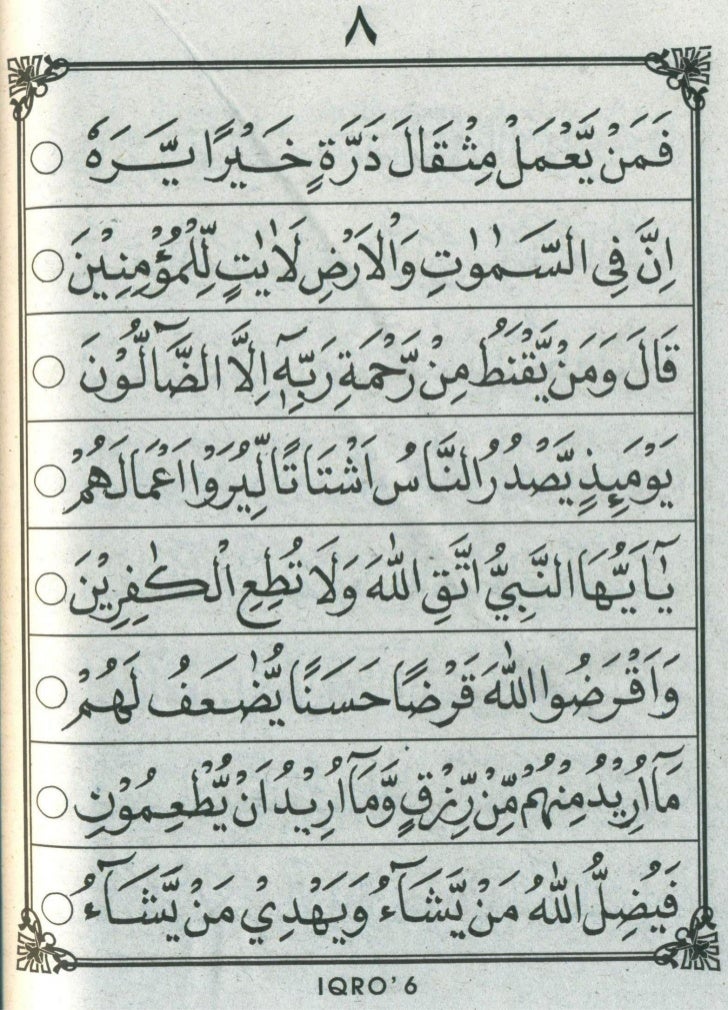 ٨
فَمَنْ يَّعْمَلْ مِثْقَالَ ذَرَّةٍ خَيْرًا يَّرَهٗ ○
اِنَّ فِى السَّمٰوٰتِ وَالْاَرْضِ لَاٰيٰتٍ لِّلْمُؤْمِنِيْنَ ○
قَالَ وَمَنْ يَّقْنَطُ مِنْ رَّحْمَةِ رَبِّهٖٓ اِلَّا الضَّاۤلُّوْنَ ○
يَوْمَىِٕذٍ يَّصْدُرُ النَّاسُ اَشْتَاتًا لِّيُرَوْا اَعْمَالَهُمْ ○
يٰٓاَيُّهَا النَّبِيُّ اتَّقِ اللّٰهَ وَلَا تُطِعِ الْكٰفِرِيْنَ ○
وَاَقْرَضُوا اللّٰهَ قَرْضًا حَسَنًا يُّضٰعَفُ لَهُمْ ○
مَآ اُرِيْدُ مِنْهُمْ مِّنْ رِّزْقٍ وَّمَآ اُرِيْدُ اَنْ يُّطْعِمُوْنِ ○
فَيُضِلُّ اللّٰهُ مَنْ يَّشَاۤءُ وَيَهْدِيْ مَنْ يَّشَاۤءُ ○
IQRO' 6